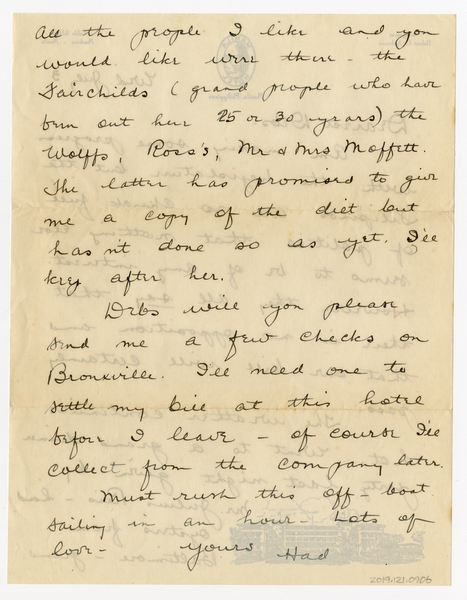 All the people I like and you
would like were there - the
Fairchilds (grand people who have
been out here 25 or 30 years) the
Wolffs, Ross's, Mr & Mrs Moffett.
The latter has promised to give
me a copy of the diet but
hasn't done so as yet. I'll
keep after her.
Debs will you please
send me a few checks on
Bronxville. I'll need one to
settle my bill at this hotel
before I leave - of course I'll
collect from the company later.
Must rush this off - boat
sailing in an hour - Lots of
love - yours Had
2019.121.0706